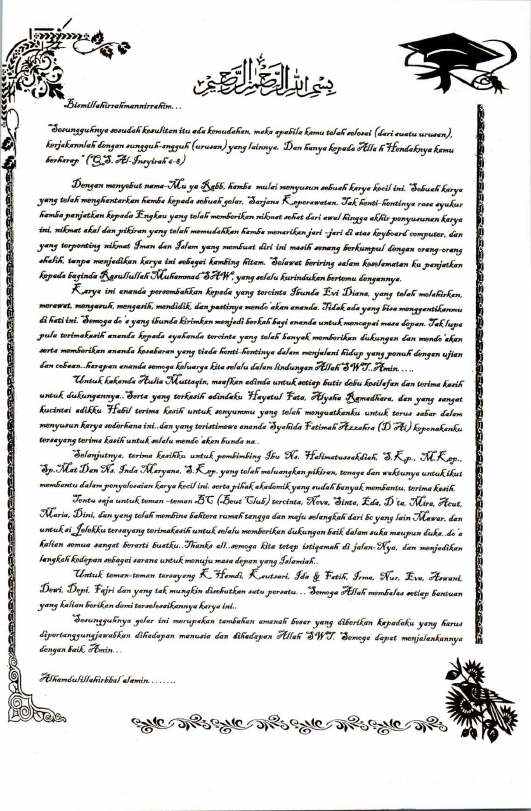 بسم الله الرحمن الرحيم
Bismillahirrahmannirrahim...
"Sesungguhnya sesudah kesuliten itu ada kemudahan, maka apabila kamu telah selesai (dari suatu urusan),
kerjakanlah dengan sungguh-sngguh (urusan) yang lainnya. Dan hanya kepada Alla h Hendaknya kamu
berharap" (Q.S. Al-Insyirah 6-8)
Dengan menyebut nama-Mu ya Rabb, hamba mulai menyusun sebuah karya kecil ini. Sebuah karya
yang telah menghantarkan hamba kepada sebuah gelar, Sarjana Keperawatan. Tak henti-hentinya rasa syukur
hamba panjatkan kepada Engkau yang telah memberikan nikmat sehat dari awal hingga akhir penyusunan karya
ini, nikmat akal dan pikiran yang telah memudahkan hamba menarikan jari -jari di atas keyboard computer, dan
yang terpenting nikmat Iman dan Islam yang membuat diri ini masih senang berkumpul dengan orang-orang
shalih, tanpa menjadikan karya ini sebagai kambing hitam. Solawat beriring salam keselamatan ku panjatkan
kepada baginda Rasullullah Muhammad SAW, yang selalu kurindukan bertemu dengannya.
Karya ini ananda persembahkan kepada yang tercinta Ibunda Evi Diana, yang telah melahirkan,
merawat, mengasuh, mengasih, mendidik, dan pastinya mendo'akan ananda. Tidak ada yang bisa menggantikanmu
di hati ini. Semoga do'a yang ibunda kirimkan menjadi berkah bagi ananda untuk mencapai masa depan. Tak lupa
pula terimakasih ananda kepada ayahanda tercinta yang telah banyak memberikan dukungan dan mendo'akan
serta memberikan ananda kesabaran yang tiada henti-hentinya dalam menjalani hidup yang penuh dengan ujian
dan cobaan..harapan ananda semoga keluarga kita selalu dalam lindungan Allah SWT..Amin....
Untuk kakanda Aulia Muttaqin, maafkan adinda untuk setiap butir debu kesilafan dan terima kasih
untuk dukungannya.. Serta yang terkasih adindaku Hayatul Fata, Alysha Ramadhara, dan yang sangat
kucintai adikku Habil terima kasih untuk senyummu yang telah menguatkanku untuk terus sabar dalam
menyusun karya sederhana ini..dan yang teristimewa ananda Syahida Fatimah Azzahra (D'Ai) keponakanku
tersayang terima kasih untuk selalu mendo'akan bunda na..
Selanjutnya, terima kasihku untuk pembimbing Ibu Ns. Halimatussakdiah, S.Kep., M.Kep.,
Sp.Mat Dan Ns. Inda Maryana, S.Kep, yang telah meluangkan pikiran, tenaga dan waktunya untuk ikut
membantu dalam penyelesaian karya kecil ini. serta pihak akademik yang sudah banyak membantu, terima kasih.
Tentu saja untuk teman -teman BC (Bout Club) tercinta, Nova, Sinta, Eda, D'ta, Mira, Acut,
Maria, Dini, dan yang telah membina bahtera rumah tangga dan maju selangkah dari bc yang lain Mawar, dan
untuk si Jelekku tersayang terimakasih untuk selalu memberikan dukungan baik dalam suka maupun duka..do'a
kalian semua sangat berarti buatku..Thanks all..semoga kita tetap istiqamah di jalan-Nya, dan menjadikan
langkah kedepan sebagai sarana untuk menuju masa depan yang Islamiah..
Untuk teman-teman tersayang K'Hamdi, Keutsari, Ida & Fatih, Irma, Nur, Eva, Aswani,
Dewi, Depi, Fajri dan yang tak mungkin disebutkan satu persatu... Semoga Allah membalas setiap bantuan
yang kalian berikan demi terselesaikannya karya ini..
Sesungguhnya gelar ini merupakan tambahan amanah besar yang diberikan kepadaku yang harus
dipertanggungjawabkan dihadapan manusia dan dihadapan Allah SWT. Semoga dapat menjalankannya
dengan baik. Amin...
Alhamdulillahirbbal'alamin........